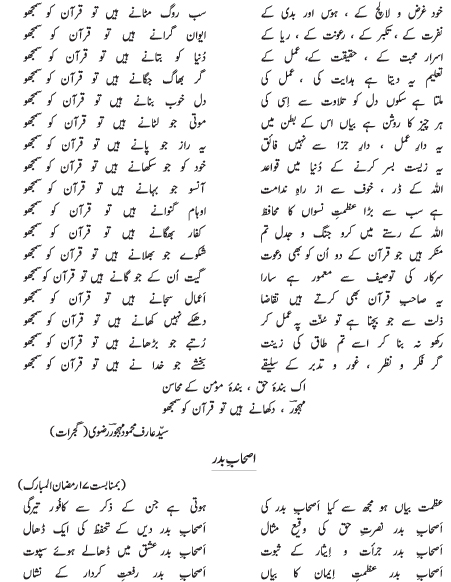 خود غرض و لالچ کے ، ہوس اور بدی کے سب روگ مٹانے ہیں تو قرآن کو سمجھو
نفرت کے ، تکبر کے ، رعونت کے ، ریا کے ایوان گرانے ہیں تو قرآن کو سمجھو
اسرار محبت کے ، حقیقت کے، عمل کے دُنیا کو بتانے ہیں تو قرآن کو سمجھو
تعلیم یہ دیتا ہے ہدایت کی ، عمل کی گر بھاگ جگانے ہیں تو قرآن کو سمجھو
ملتا ہے سکوں دل کو تلاوت سے اِسی کی دل خوب بنانے ہیں تو قرآن کو سمجھو
ہر چیز کا روشن ہے بیاں اس کے بطن میں موتی جو لٹانے ہیں تو قرآن کو سمجھو
یہ دارِ عمل ، دارِ جزا سے نہیں فائق یہ راز جو پانے ہیں تو قرآن کو سمجھو
یہ زیست بسر کرنے کے دُنیا میں قواعد خود کو جو سکھانے ہیں تو قرآن کو سمجھو
اللہ کے ڈر ، خوف سے از راہِ ندامت آنسو جو بہانے ہیں تو قرآن کو سمجھو
ہے سب سے بڑا عظمتِ نسواں کا محافظ اوہام گنوانے ہیں تو قرآن کو سمجھو
اللہ کے رستے میں کرو جنگ و جدل تم کفار بھگانے ہیں تو قرآن کو سمجھو
منکر ہیں جو قرآن کے دو اُن کو بھی دعوت شکوے جو بھلانے ہیں تو قرآن کو سمجھو
سرکار کی توصیف سے معمور ہے سارا گیت اُن کے جو گانے ہیں تو قرآن کو سمجھو
یہ صاحبِ قرآن بھی کرتے ہیں تقاضا اَعمال سجانے ہیں تو قرآن کو سمجھو
ذلت سے جو بچنا ہے تو سنّت پہ عمل کر دھکے نہیں کھانے ہیں تو قرآن کو سمجھو
رکھو نہ بنا کر اسے تم طاق کی زینت رُتبے جو بڑھانے ہیں تو قرآن کو سمجھو
گر فکر و نظر ، غور و تدبر کے سلیقے بخشے جو خدا نے ہیں تو قرآن کو سمجھو
اک بندۂ حق ، بندۂ مؤمن کے محاسن
مہجورؔ ، دکھانے ہیں تو قرآن کو سمجھو
سیّد عارف محمود مہجورؔ رضوی (گجرات)
اصحابِ بدر
(بمناسبت ۱۷ رمضان المبارک)
عظمت بیاں ہو مجھ سے کیا اَصحابِ بدر کی ہوتی ہے جن کے ذکر سے کافور تیرگی
اَصحابِ بدر نصرتِ حق کی وقیع مثال اَصحابِ بدر دیں کے تحفظ کی ایک ڈھال
اَصحابِ بدر جرأت و اِیثار کے ثبوت اَصحابِ بدر عشق میں ڈھالے ہوئے سپوت
اَصحابِ بدر عظمتِ اِیمان کا بیاں اَصحابِ بدر رفعتِ کردار کے نشاں